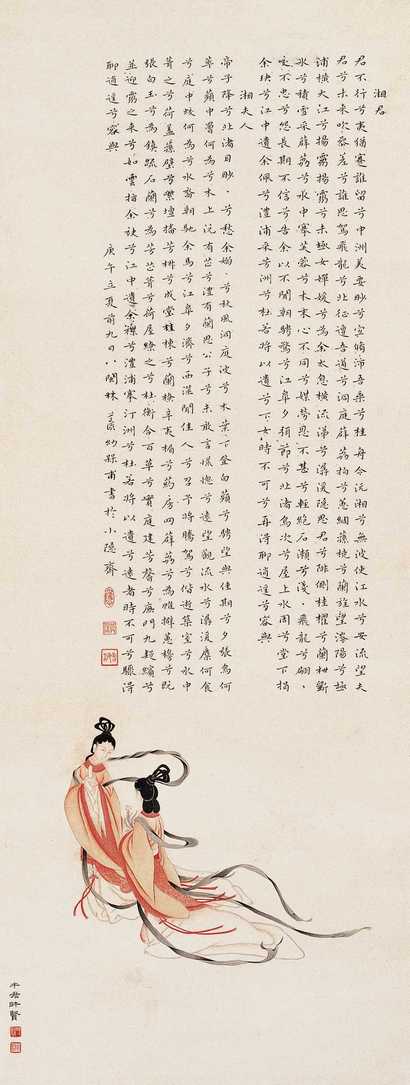 湘君
君不行兮夷猶蹇誰留兮中洲美要眇兮宜脩沛吾乘兮桂舟令沅湘兮無波使江水兮安流望夫
君兮未來吹參差兮誰思駕飛龍兮北征邅吾道兮洞庭薜荔柏兮蕙綢蓀橈兮蘭旌望涔陽兮極
浦橫大江兮揚靈揚靈兮未極女嬋媛兮為余太息橫流涕兮潺湲隱思君兮陫側桂櫂兮蘭枻斲
冰兮積雪采薜荔兮水中搴芙蓉兮木末心不同兮媒勞恩不甚兮輕絕石瀨兮淺、飛龍兮翩、
交不忠兮怨長期不信兮告余以不閒朝騁騖兮江皋夕弭節兮北渚鳥次兮屋上水周兮堂下捐
余玦兮江中遺余佩兮澧浦采芳洲兮杜若將以遺兮下女時不可兮再得聊逍遙兮容與
湘夫人
帝子降兮北渚目眇、兮愁余嫋、兮秋風洞庭波兮木葉下登白薠兮騁望與佳期兮夕張鳥何
萃兮蘋中罾何為兮木上沅有芷兮澧有蘭思公子兮未敢言慌惚兮遠望觀流水兮潺湲麋何食
兮庭中蛟何為兮水裔朝馳余馬兮江皋夕濟兮西澨聞佳人兮召予將騰駕兮偕逝築室兮水中
葺之兮荷蓋蓀壁兮紫壇播芳椒兮成堂桂棟兮蘭橑辛夷楣兮葯房罔薜荔兮為帷擗蕙櫋兮既
張白玉兮為鎮疏石蘭兮為芳芷葺兮荷屋繚之兮杜衡合百草兮實庭建芳馨兮廡門九嶷繽兮
並迎靈之來兮如雲捐余袂兮江中遺余褋兮澧浦搴汀洲兮杜若將以遺兮遠者時不可兮驟得
聊逍遙兮容與
庚午立夏前九日八閩林甫書於小隱齋
時賢